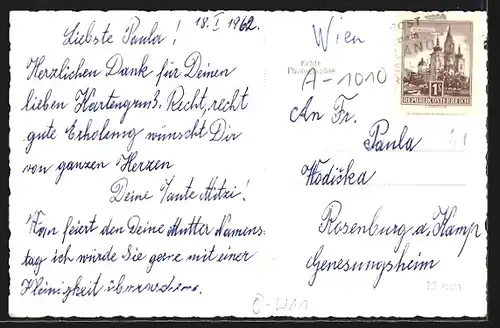 18. I 1962.
Liebste Paula!
Herzlichen Dank für Deinen
lieben Kartengruß. Recht, recht
gute Erholung wünscht Dir
von ganzen Herzen
Deine Tante Mitzi!
Wan feiert den Deine Mutter Namens-
tag ich würde Sie gerne mit einer
Kleinigkeit überraschen.
Wien
POST
Echte
Photographie
A-1010
1S
REPUBLIK ÖSTERREICH
An Fr.
Paula
Wodiška
Rosenburg a, Kamp
Genesungsheim